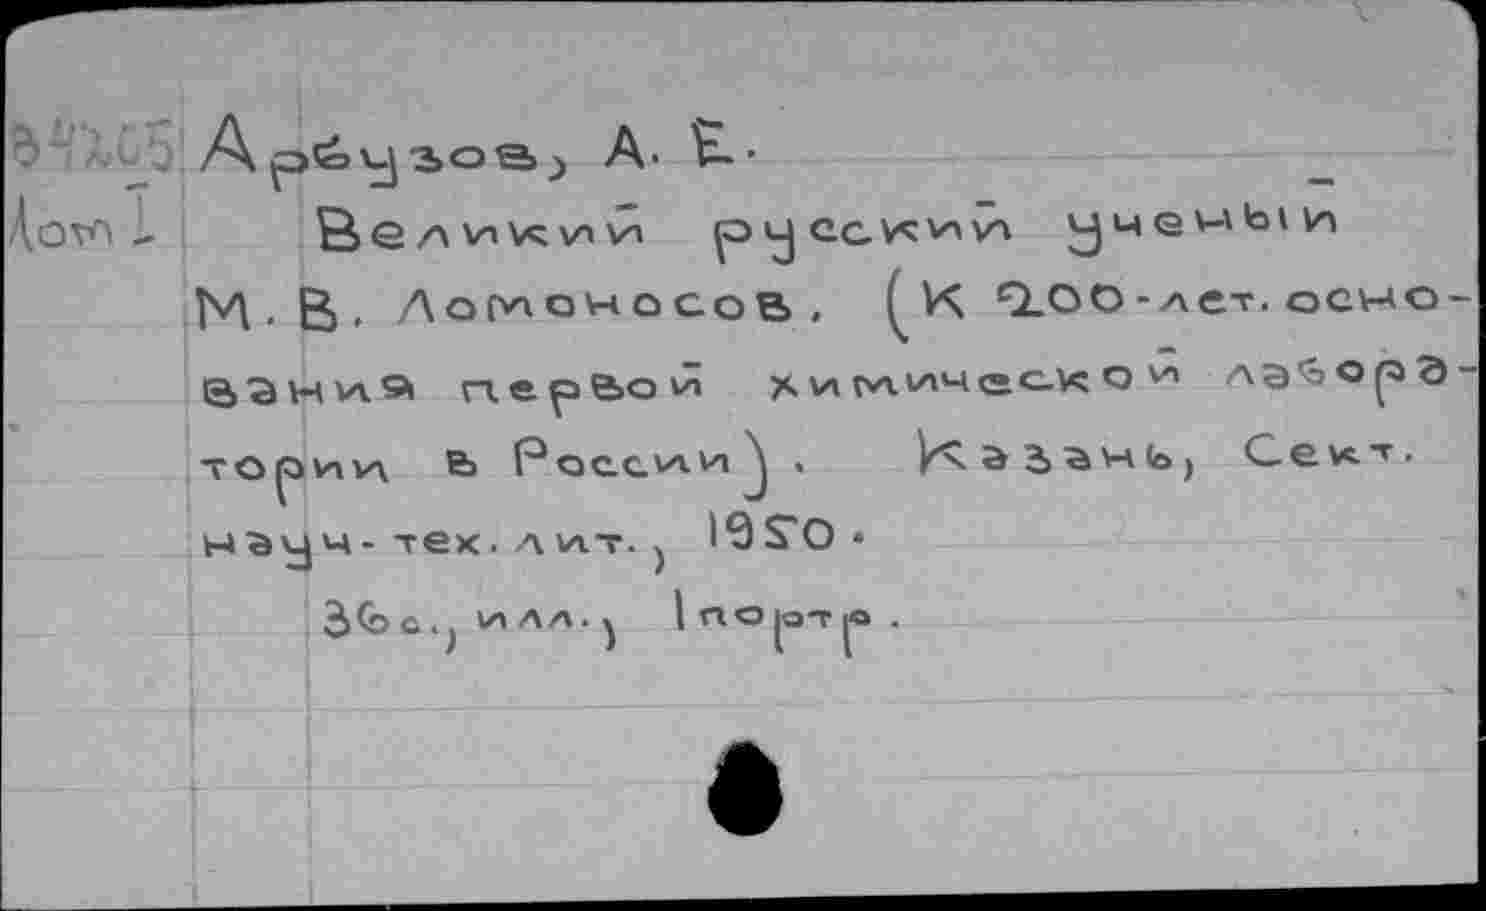 Арбузов, А. Е.
Лом 1 Великий русский ученый
М. В. Ломоносов. (К 200-лет. осно-
вания первой химической лабора-
тории в России). Казань, Сект.
науч-тех. лит., 1950.
36 с., илл., 1 портр.